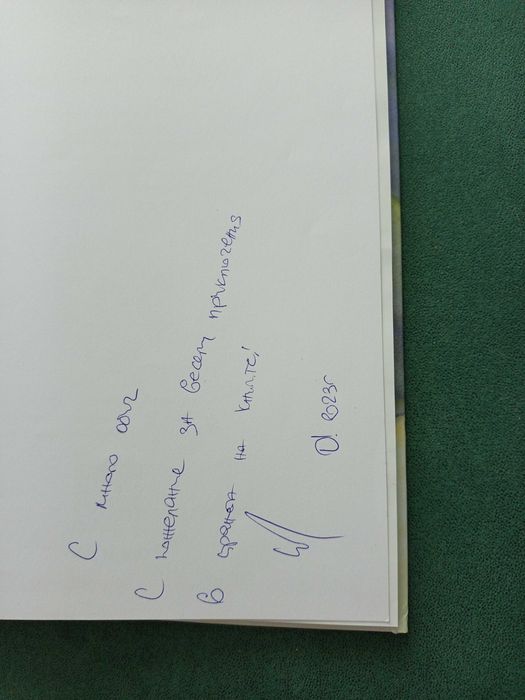 С много обич
С пожелание за весели приключения
в страната на книгите!
2023г